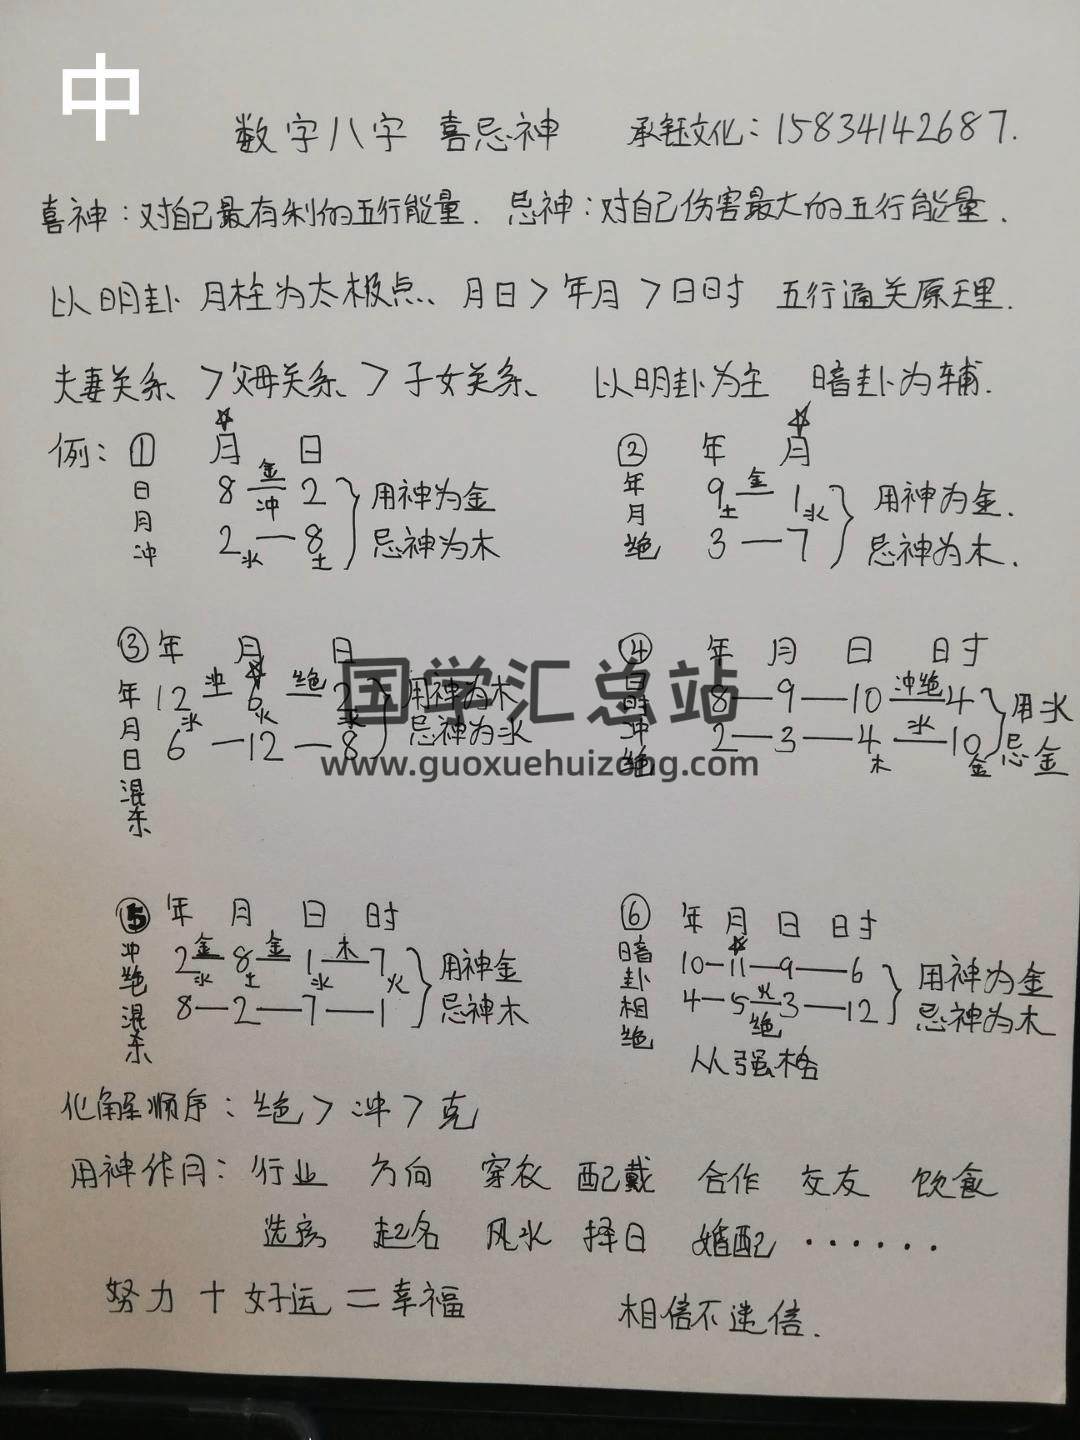 中
数字八字 喜忌神 承钰文化:15834142687.
喜神:对自己最有利的五行能量. 忌神:对自己伤害最大的五行能量.
以明卦 月柱为太极点、月日>年月>日时 五行通关原理.
夫妻关系 >父母关系>子女关系、 以明卦为主 暗卦为辅.
例: ① ☆月 日
日月冲
8 金 冲 2 用神为金
2水—8土 忌神为木
② 年 ☆月
年月绝
9土 金 1水 用神为金.
3—7 忌神为木.
③ 年 月 日
年月日混杂
12水 冲 ☆6火 绝 2水 用神为木
6—12—8 忌神为水
④ 年 月 日 时
日时冲绝
8—9—10 冲绝 4 用水
2—3—4木 水 10金 忌金
国学汇总站
www.guoxuehuizong.com
⑤ 年 月 日 时
冲绝混杂
2水 金 8土 金 1水 木 7火 用神金
8—2—7—1 忌神木
⑥ 年 月 日 时
暗卦相绝
10—☆11—9—6 用神为金
4—5 火 绝 3—12 忌神为木
从强格
化解顺序:绝>冲>克
用神作用:行业 方向 穿衣 配戴 合作 交友 饮食
选房 起名 风水 择日 婚配······
努力+好运=幸福 相信不迷信.